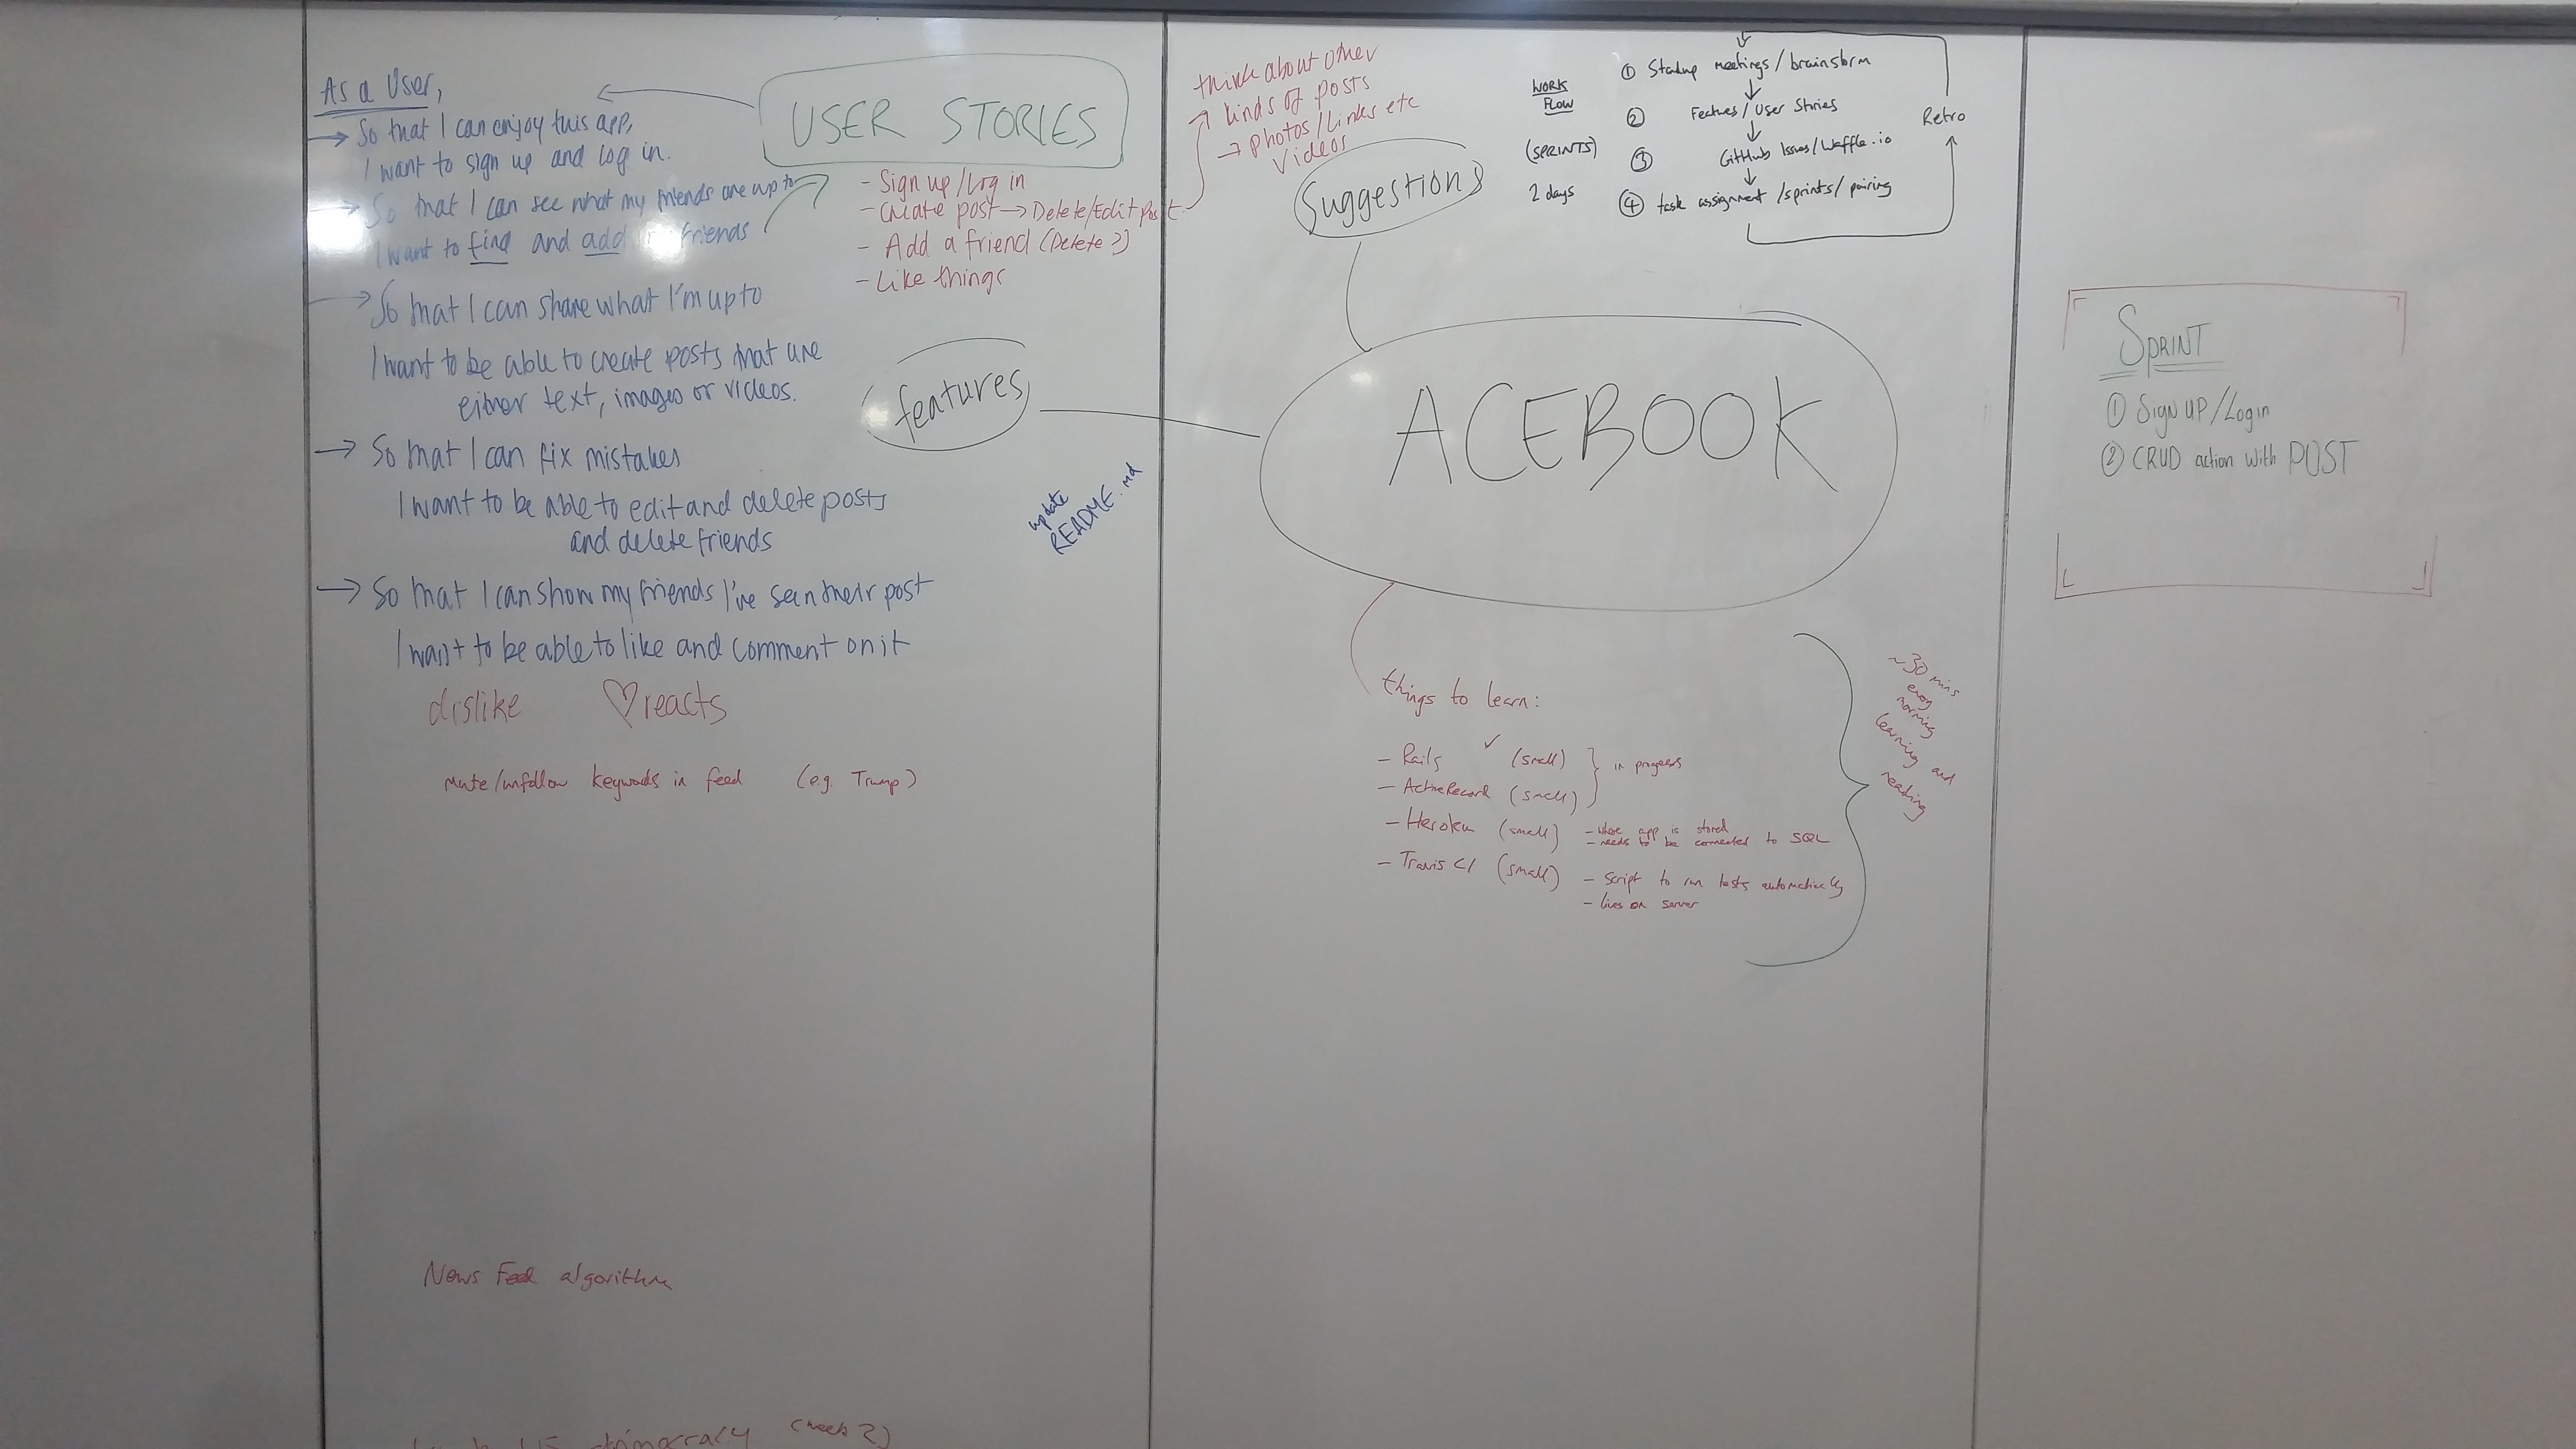 As a User,
→ So that I can enjoy this app,
I want to sign up and log in.
→ So that I can see what my friends are up to
I want to find and add friends
→ So that I can share what I'm up to
I want to be able to create posts that are
either text, images or videos.
→ So that I can fix mistakes
I want to be able to edit and delete posts
and delete friends
→ So that I can show my friends I've seen their post
I want to be able to like and comment on it
dislike ♡reacts
Mute/unfollow keywords in feed (e.g. Trump)
News Feed algorithm
(week 2)
USER STORIES
- Sign up/Log in
- Create post → Delete/Edit post
- Add a friend (Delete?)
- Like things
features
update
README.md
think about other
kinds of posts
→ Photos/Links etc
Videos
Suggestions
WORK
FLOW
(SPRINTS)
2 days
① Standup meetings/brainstorm
② Features/User Stories
③ GitHub Issues/Waffle.io
④ task assignment/sprints/pairing
Retro
ACEBOOK
things to learn:
- Rails ✓ (small)
- ActiveRecord (small)
} in progress
- Heroku (small) - where app is stored
- needs to be connected to SQL
- Travis CI (small) - script to run tests automatically
- lives on server
~30 mins
every
morning
learning and
reading
SPRINT
① Sign UP/Login
② CRUD action with POST